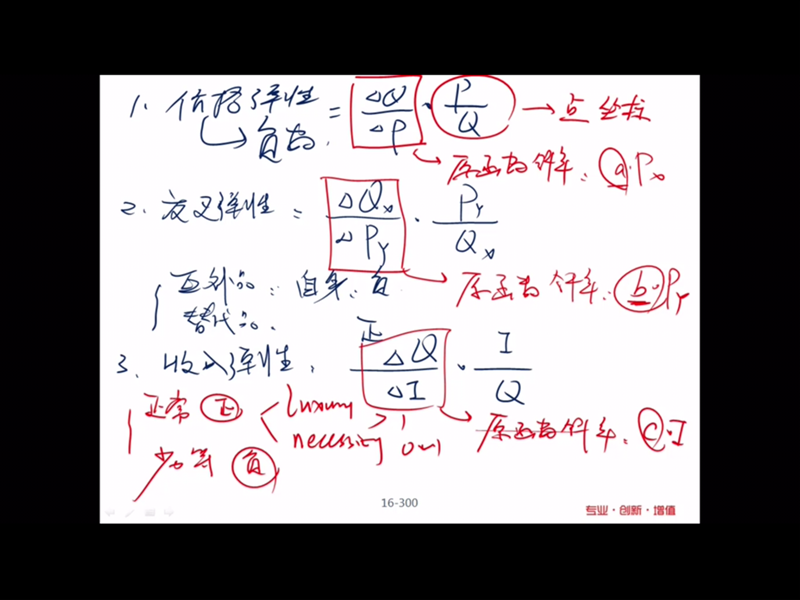 1. 价格弹性 = ΔQ/ΔP · P/Q → 点坐标
↳ 负数.
↳ 原函数斜率: a·Px
2. 交叉弹性 = ΔQx/ΔPY · PY/Qx
↳ 原函数斜率: b·PY
互补品: 自身: 负
替代品. 正
3. 收入弹性. ΔQ/ΔI · I/Q
↳ 原函数斜率. C·I
正常 正 < luxury >1
necessity 0~1
劣等 负
16-300
专业·创新·增值